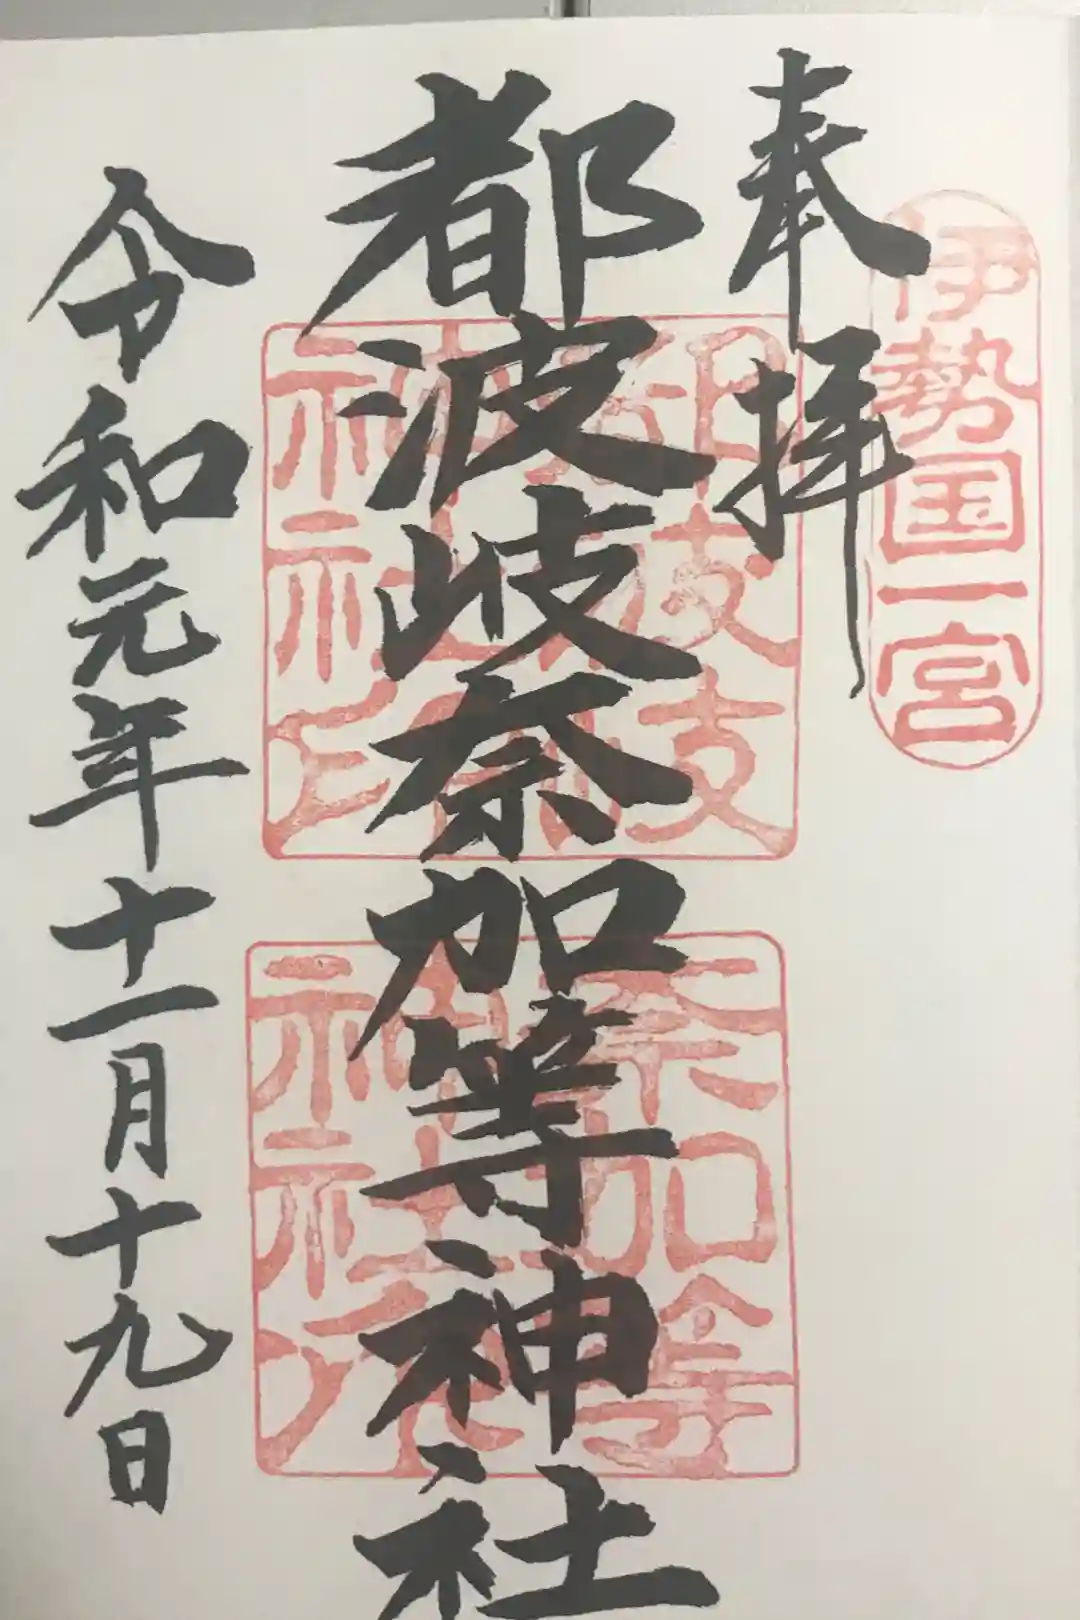 伊勢国一宮
奉拝
都波岐奈加等神社
令和元年十一月十九日
奈加等
神社